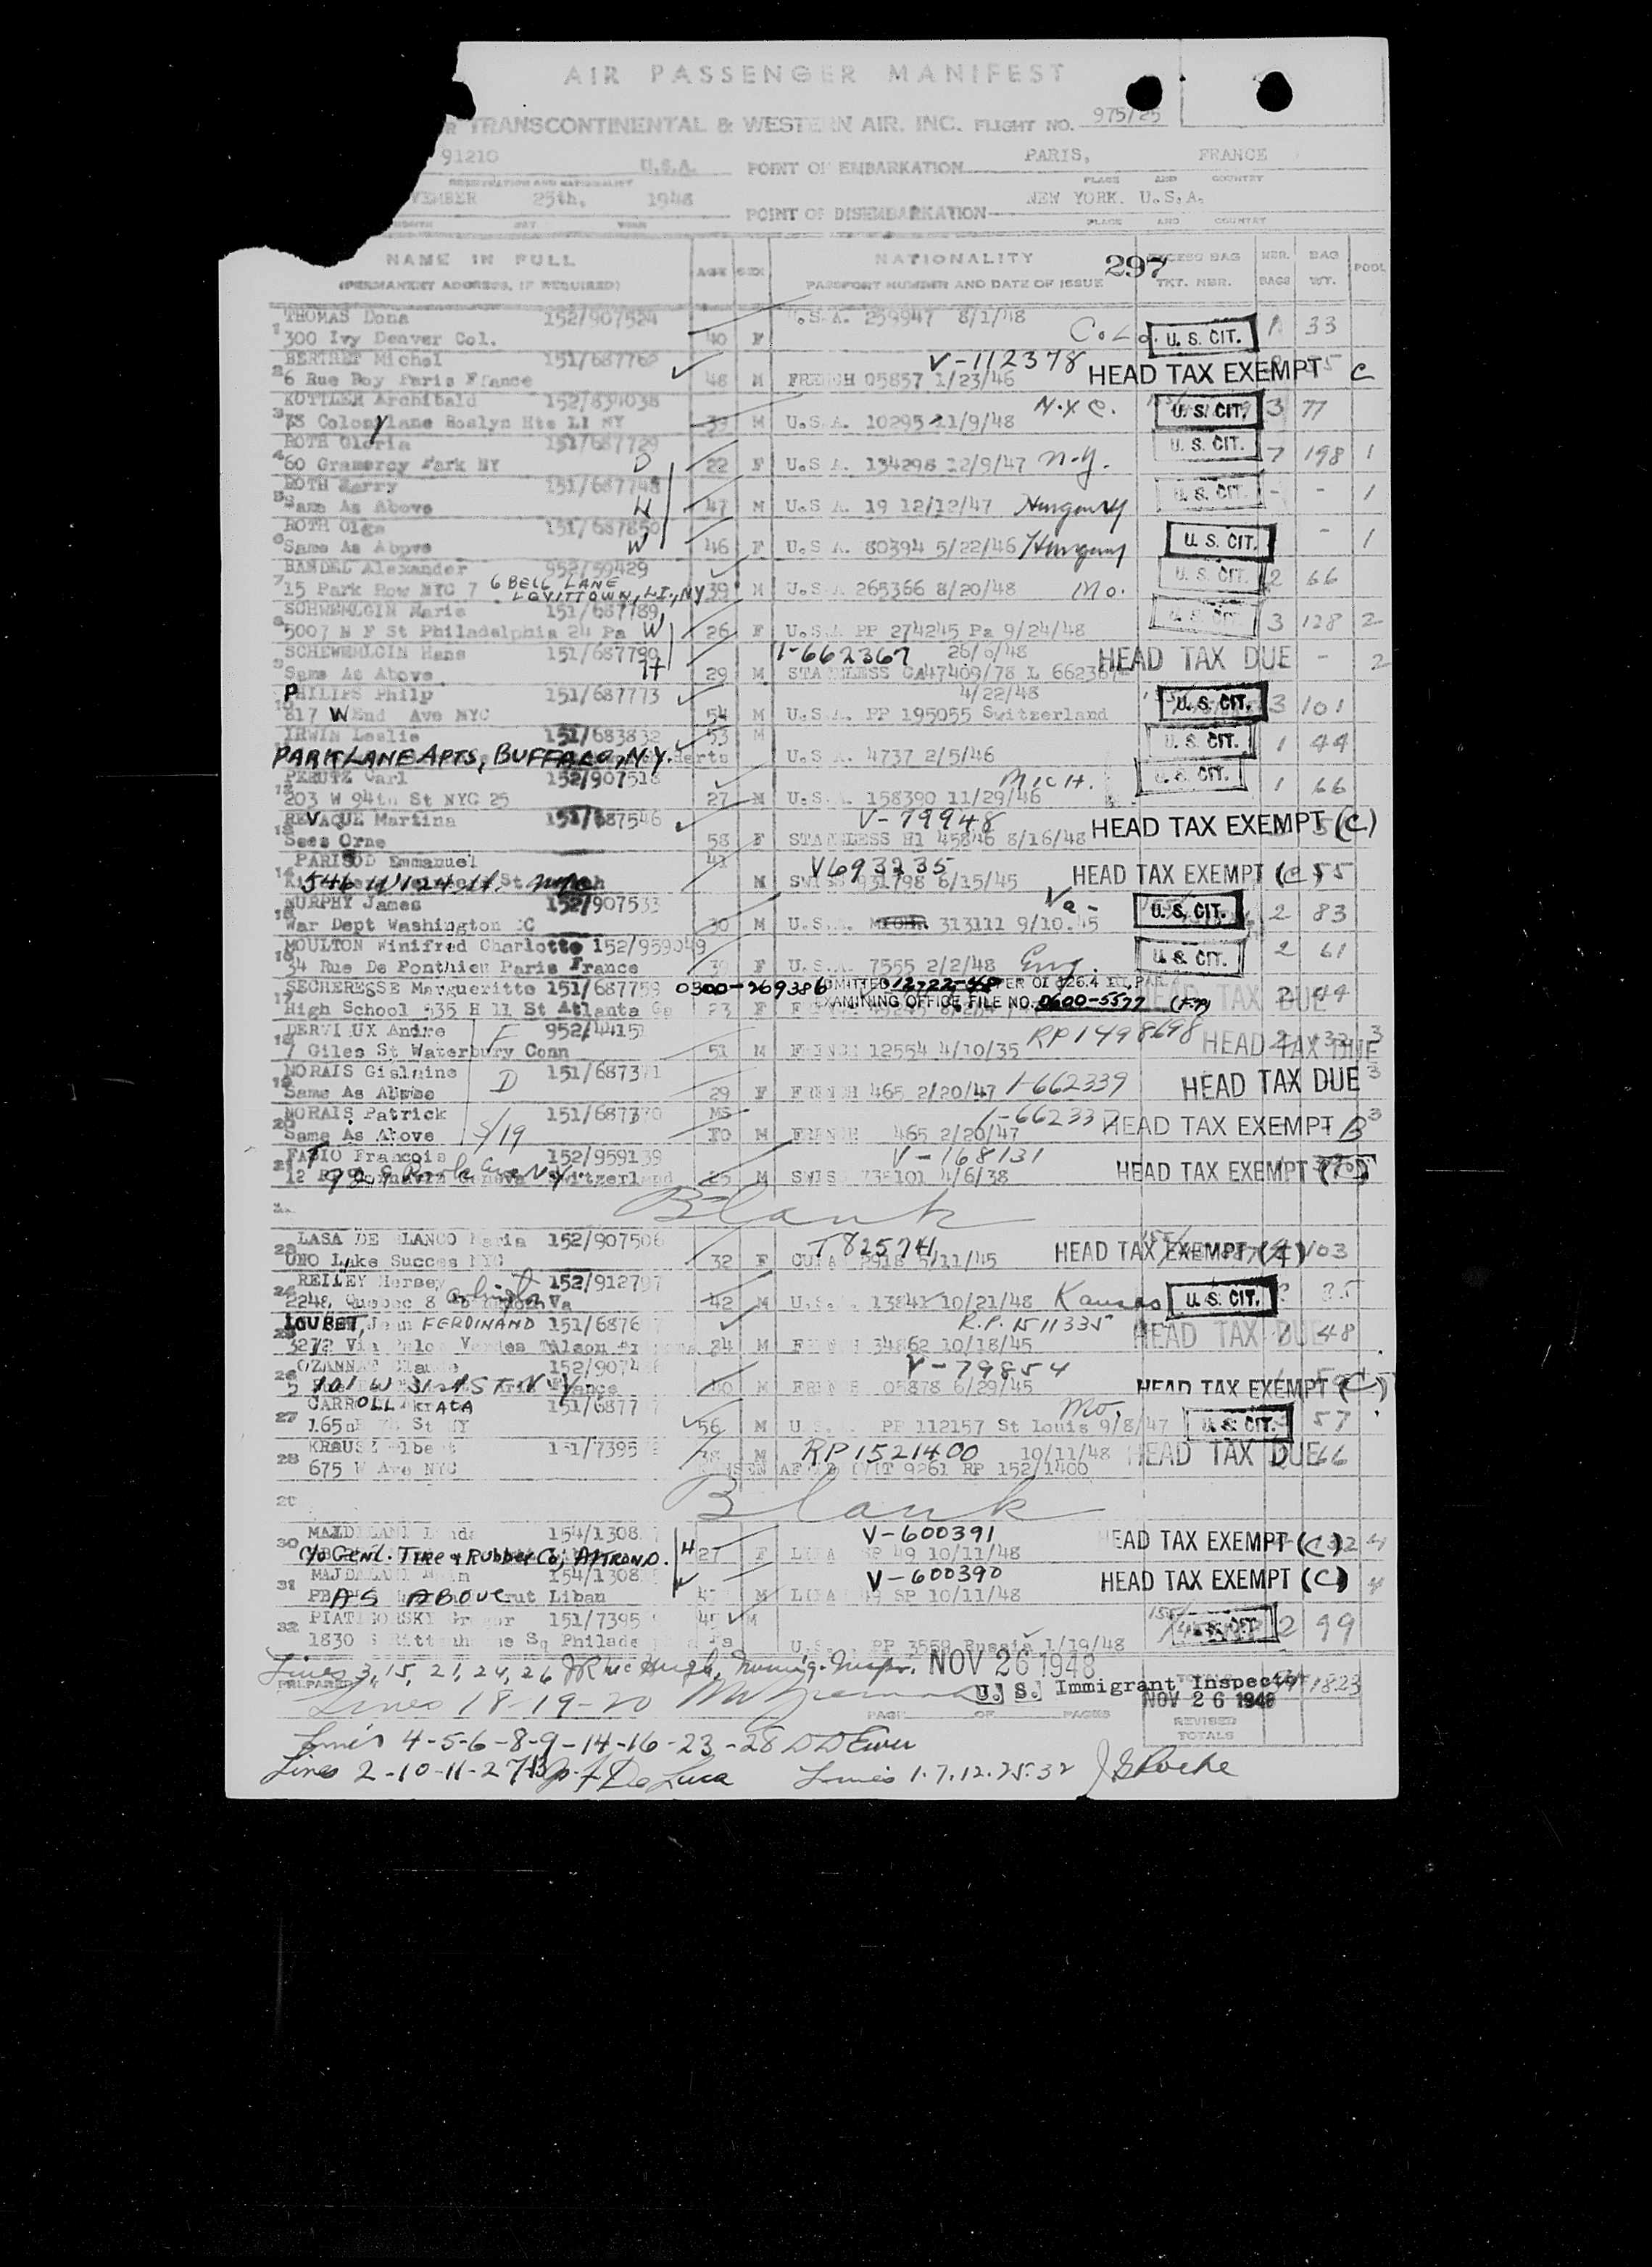 AIR PASSENGER MANIFEST
TRANSCONTINENTAL & WESTERN AIR, INC. FLIGHT NO. 975/25
91210 U.S.A. POINT OF EMBARKATION PARIS, FRANCE
REGISTRATION AND NATIONALITY PLACE AND COUNTRY
VEMBER 25th, 1948 POINT OF DISEMBARKATION NEW YORK. U.S.A.
MONTH DAY YEAR PLACE AND COUNTRY
NAME IN FULL AGE SEX NATIONALITY 297 EXCESS BAG NBR. BAG POOL
(PERMANENT ADDRESS, IF REQUIRED) PASSPORT NUMBER AND DATE OF ISSUE TKT. NBR. BAGS WT.
THOMAS Dona 152/907524 U.S.A. 259947 8/1/48
1 300 Ivy Denver Col. 40 F Colo. U. S. CIT. 1 33
BERTRET Michel 151/687762 V-112378
2 6 Rue Roy Paris Ffance 48 M FRENCH 05857 1/23/46 HEAD TAX EXEMPT C
KOTTLER Archibald 152/834038 N.Y.C.
3 75 Colony lane Roslyn Hts LI NY 39 M U.S.A. 10295 11/9/48 U. S. CIT. 3 77
ROTH Gloria 151/687729
4 60 Gramercy Park NY D 22 F U.S.A. 134298 12/9/47 N.Y. U. S. CIT. 7 198 1
ROTH Harry 151/687748
5 Same As Above H 47 M U.S.A. 19 12/12/47 Hungary U. S. CIT. - - 1
ROTH Olga 151/687850
6 Same As Above W 46 F U.S.A. 80394 5/22/46 Hungary U. S. CIT. - 1
BANDEL Alexander 952/59429
7 15 Park Row NYC 7 6 BELL LANE LEVITTOWN, L.I., NY 39 M U.S.A. 265366 8/20/48 Mo. U. S. CIT. 2 66
SCHWEMLGIN Marie 151/687789
8 5007 N F St Philadelphia 24 Pa W 26 F U.S.A PP 274245 Pa 9/24/48 U. S. CIT. 3 128 2
SCHEWEMLGIN Hans 151/687790 I-662367
9 Same As Above H 29 M STATELESS CA47409/78 L 662367 HEAD TAX DUE - 2
PHILIPS Philp 151/687773 4/22/48
10 817 W End Ave NYC 54 M U.S.A. PP 195055 Switzerland U. S. CIT. 3 101
IRWIN Leslie 151/683832 53 M
PARK LANE APTS, BUFFALO, N.Y. U.S.A. 4737 2/5/46 U. S. CIT. 1 44
PERUTZ Carl 152/907518 MICH.
12 203 W 94th St NYC 25 27 M U.S.A. 158390 11/29/46 U. S. CIT. 1 66
REVAQUE Martina 151/687546 V-79948
13 Sees Orne 58 F STATELESS H1 45846 8/16/48 HEAD TAX EXEMPT (C)
PARISOD Emmanuel 41 V693235
14 546 W 124 St. M SWISS 931798 6/15/45 HEAD TAX EXEMPT (C) 55
MURPHY James 152/907533 Va-
15 War Dept Washington DC 30 M U.S.A. 313111 9/10.45 U. S. CIT. 2 83
MOULTON Winifred Charlotte 152/959049
16 34 Rue De Ponthieu Paris France 39 F U.S.A. 7555 2/2/48 Eng. U. S. CIT. 2 61
SECHERESSE Margueritte 151/687759 0300-269386 ADMITTED 12-22-48 PER OI 726.4
17 High School 535 H ll St Atlanta Ga 23 F EXAMINING OFFICE FILE NO. 0600-5577 HEAD TAX DUE 2 44
DERVI UX Andre F 952/4415
18 7 Giles St Waterbury Conn 51 M FRENCH 12554 4/10/35 RP 1498698 HEAD TAX DUE 3
NORAIS Gislaine D 151/687371
19 Same As Above 29 F FRENCH 465 2/20/47 I-662339 HEAD TAX DUE 3
NORAIS Patrick 151/687370 MS
20 Same As Above S/19 10 M FRENCH 465 2/20/47 HEAD TAX EXEMPT B 3
FABIO Francois 152/959139 V-168131
21 25 M SWISS 738101 4/6/38 HEAD TAX EXEMPT
Blank
LASA DE BLANCO Maria 152/907506 T82574
23 UNO Lake Succes NYC 32 F CUBA 2918 5/11/45 HEAD TAX EXEMPT (4) 103
REILEY Hersey 152/912797
24 2248 Quebec 8 Arlington Va 42 M U.S.A. 13841 10/21/48 Kansas U. S. CIT. 35
LOUBET, Jean FERDINAND 151/6876 R.P. 1511335
25 34 M FRENCH 34862 10/18/45 HEAD TAX DUE 48
OZANNE Claude 152/9074 V-79854
26 101 W 31st ST. N.Y. 40 M FRENCH 05878 6/29/45 HEAD TAX EXEMPT (C)
CARROLL 151/6877 Mo.
27 56 M U.S.A. PP 112157 St louis 9/8/47 U. S. CIT. 57
KRAUSZ Albert 151/7395 RP1521400 10/11/48
28 675 W Ave NYC 38 M HEAD TAX DUE 66
Blank
MAJDALANI Linda 154/1308 V-600391
30 C/O GENL. TIRE & RUBBER CO, AKRON O. 27 F 49 10/11/48 HEAD TAX EXEMPT (C) 4
MAJDALANI 154/1308 V-600390
31 AS ABOVE rut Liban M 49 SP 10/11/48 HEAD TAX EXEMPT (C) 4
PIATIGORSKY Gregor 151/7395 45 M
32 1830 S Rittenhouse Sq Philade Pa U.S.A. PP 3559 Russia 1/19/48 U. S. CIT. 2 99
Lines 3, 15, 21, 24, 26 JR McHugh, Immig. Inspr. NOV 26 1948
PREPARED BY Lines 18-19-20 U. S. Immigrant Inspector TOTALS 1823
PAGE OF PAGES NOV 26 1948
REVISED TOTALS
Lines 4-5-6-8-9-14-16-23-28 D D Ewer
Lines 2-10-11-27 De Luca Lines 1.7.12.25.32 J G Roche